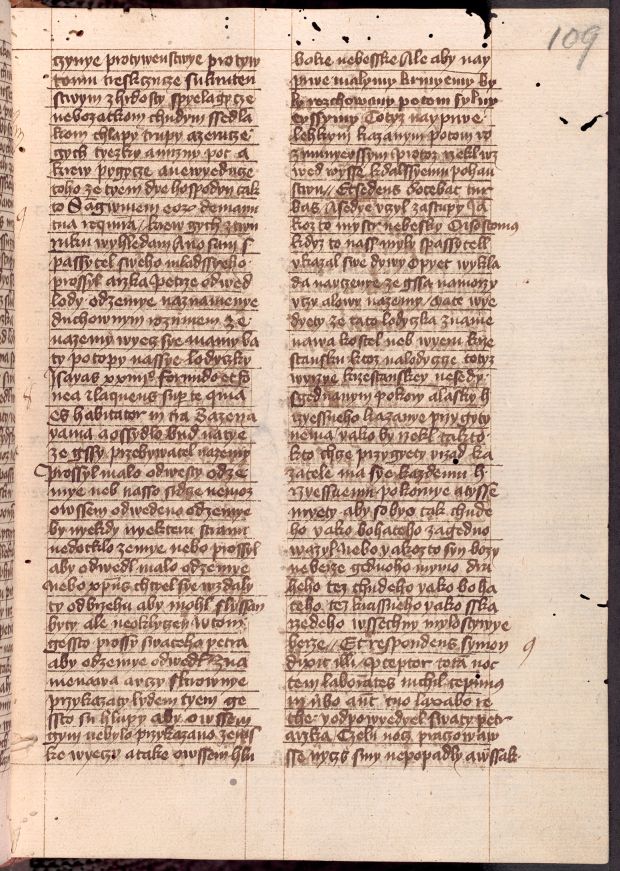 109
czynye protywenstwye protyw
tomu tieskzucze sukruten
stwym zhrdosty spyelagycze
nebozatkom chudym ssedla
kom chlapy trupy azenucze
gych tyezky anuzny pot a
krew pygycze aneweducze
toho ze tyem dye hospodyn tak
to Sagwinem eor demanu
tua requira krew gych ztwu
ruku wyhledam Ano sam s
passytel sweho mladssyeho
prossyl arzka petrze odwed
lody odzemye naznamenye
duchownym rozumem ze
nazemy wyecz sye mamy ba
ty potopy nassye lodyczky
Isayas xxiiiio formido et fo
uea et laqueus sup te qui
es habitator in tra Bazen a
yama aossydlo bud natye
ze gssy przebywatel nazemy
prossyl malo odwesty odze
mye neb nasso sidze nemoz
owssem odwedeno odzemye
by nyekdy nyekteru stranu
nedotklo zemye nebo prossyl
aby odwedl malo odzemye
nebo xpus chtyel sye wzdaly
ty odbrzehu aby mohl slyssan
byty ale neoklyczen wtom
gessto prossy swateho petra
aby odzemye odwedl zna
menawa arzy slownye
przykazaty lydem tyem ge
ssto su hlupy aby owssem
gym nebylo przykazano zemss
ke wyeczy atake owssem hlu
boke nebesske Ale aby nay
prwe malymy krmyemy by
ly rozchowany potom sylny
eyssymy Totyz nayprwe
lehkym kazanym potom ro
zumnyeyssym protoz rzekl wz
wed wysse kdalssyemu pohau
stwu Et sedens docebat tur
bas Asedye vczyl zastupy Ja
kozto mystr nebesky Crisostomus
kdyz to nass myly spassytell
vkazal swe dywy Opyet wykla
da narzenye ze gssa namorzy
vczy alowy nazemy Vate wye
dyety ze tato lodyczka zname
nawa kostel neb wyeru krze
stansku ktoz nalodycze totyz
wwyrze krzestanskey nesedy
sgednanym pokory alasky h
rzyessneho kazanye przygyty
nema yako by rzekl takto
kto chcze przygiety vrzad ka
zatele ma sye kazdemu h
rzyessnemu pokornye atysse
myety aby sobyo tak chude
ho yako bohateho zagedno
wazyl Nebo yakozto syn bozy
neberze gednoho mymo dru
heho tez chudeho yako boha
teho tez krasneho yako sska
redeho wssechny mylostywye
berze Et respondens symon
dixit illi Preceptor tota noc
tem laborates nichil cepimus
in vbo aut tuo laxabo re
the yodpowyedyel swaty petr
arzka Czelu nocz praczowaw
sse nyczs smy nepopadly awssak